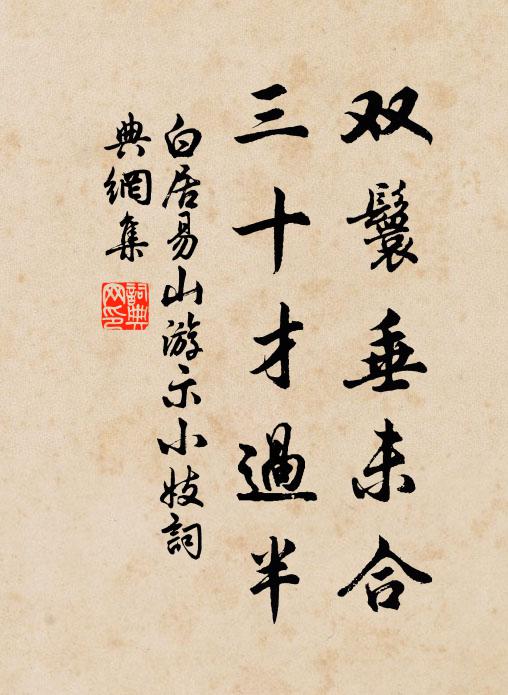 双鬟垂未合
三十才過半
白居易山游示小妓詞
典網集
詞典網印